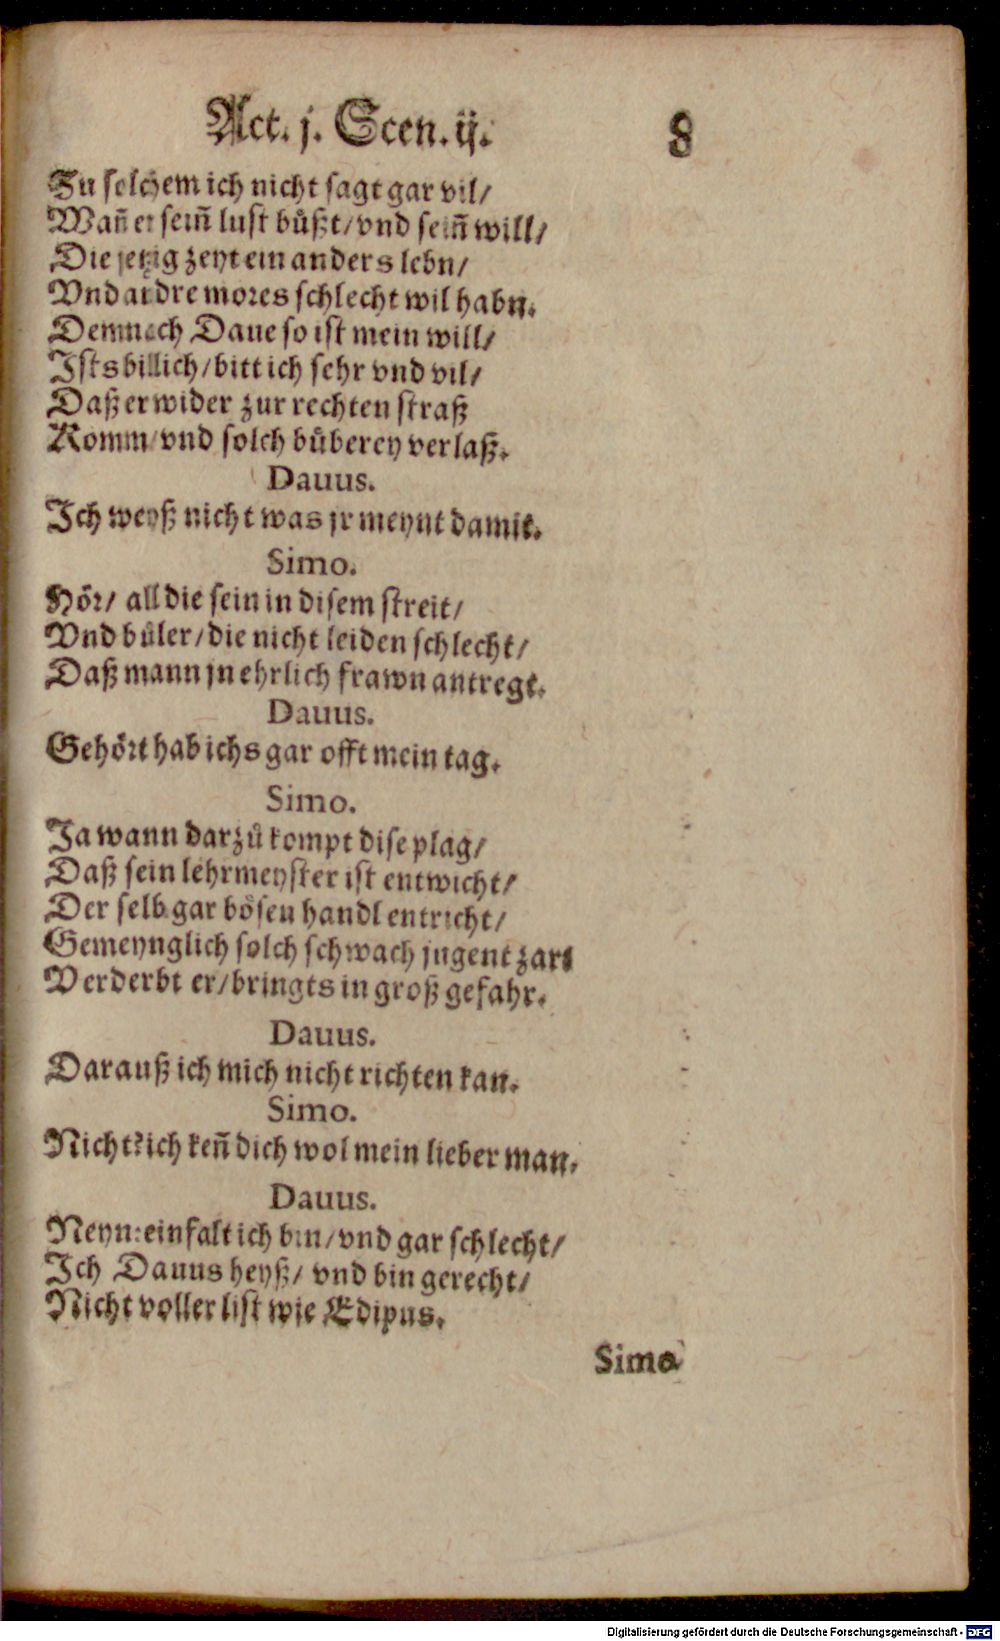 Act. j. Scen. ij. 8
Zu solchem ich nicht sagt gar vil/
Wañ er seim̃ lust bůßt/vnd seim̃ will/
Die jetzig zeyt ein anders lebn/
Vnd andre mores schlecht wil habn.
Demnach Daue so ist mein will/
Ists billich/bitt ich sehr vnd vil/
Daß er wider zur rechten straß
Komm/vnd solch bůberey verlaß.
Dauus.
Ich weyß nicht was jr meynt damit.
Simo.
Hör/ all die sein in disem streit/
Vnd bůler/die nicht leiden schlecht/
Daß mann jn ehrlich frawn antregt.
Dauus.
Gehört hab ichs gar offt mein tag.
Simo.
Ja wann darzů kompt dise plag/
Daß sein lehrmeyster ist entwicht/
Der selb gar bösen handl entricht/
Gemeynglich solch schwach jugent zart
Verderbt er/bringts in groß gefahr.
Dauus.
Darauß ich mich nicht richten kan.
Simo.
Nicht? ich keñ dich wol mein lieber man.
Dauus.
Neyn: einfalt ich bin/vnd gar schlecht/
Ich Dauus heyß/ vnd bin gerecht/
Nicht voller list wie Edipus.
Simo
Digitalisierung gefördert durch die Deutsche Forschungsgemeinschaft - DFG